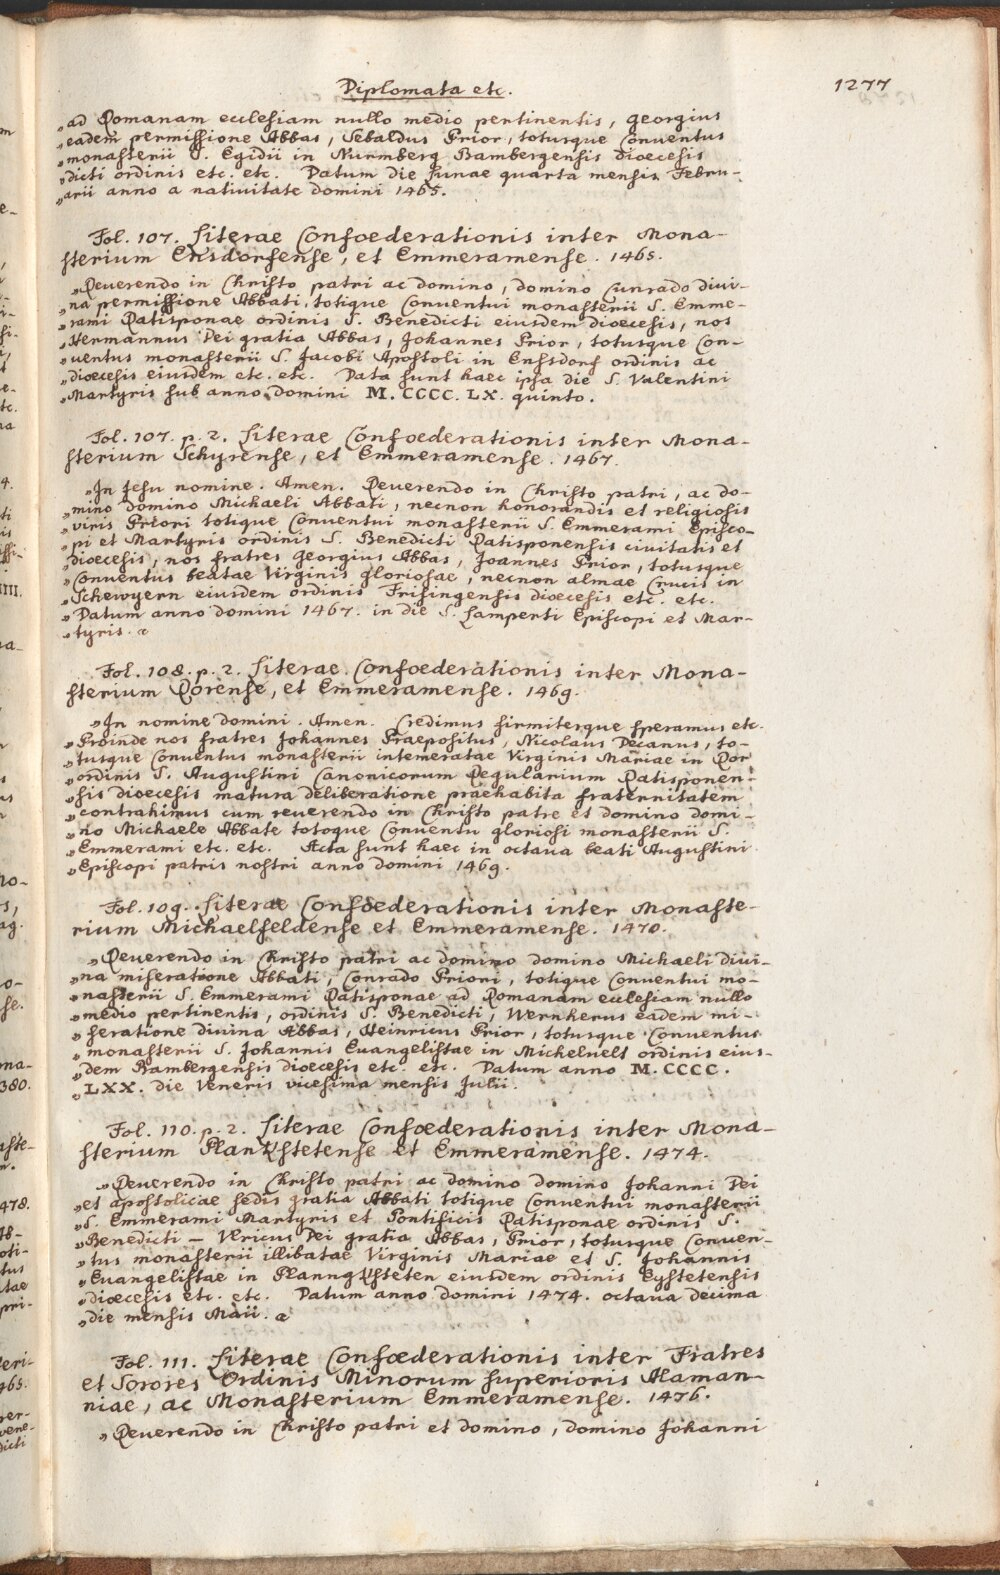 Diplomata etc. 1277
„ad Romanam ecclesiam nullo medio pertinentis, Georgius
„eadem permissione Abbas, Sebaldus Prior, totusque Conventus
„monasterii S. Egidii in Nurmberg Bambergensis dioecesis
„dicti ordinis etc. etc. Datum die Lunae quarta mensis Febru-
„arii anno a nativitate domini 1465.
Fol. 107. Literae Confoederationis inter Mona-
sterium Ensdorfense, et Emmeramense. 1465.
„Reuerendo in Christo patri ac domino, domino Cunrado divi-
„na permissione Abbati, totique Conventui monasterii S. Emme-
„rami Ratisponae ordinis S. Benedicti eiusdem dioecesis, nos
„Hermannus Dei gratia Abbas, Johannes Prior, totusque Con-
„uentus monasterii S. Jacobi Apostoli in Enstdorf ordinis ac
„dioecesis eiusdem etc. etc. Data sunt haec ipsa die S. Valentini
„Martyris sub anno domini M. CCCC. LX. quinto.
Fol. 107. p. 2. Literae Confoederationis inter Mona-
sterium Schyrense, et Emmeramense. 1467.
„In Jesu nomine. Amen. Reuerendo in Christo patri, ac do-
„mino domino Michaeli Abbati, necnon honorandis et religiosis
„viris Priori totique Conventui monasterii S. Emmerami Episco-
„pi et Martyris ordinis S. Benedicti Ratisponensis civitatis et
„dioecesis, nos fratres Georgius Abbas, Joannes Prior, totusque
„Conventus beatae Virginis gloriosae, necnon almae Crucis in
„Schewyern eiusdem ordinis Frisingensis dioecesis etc. etc.
„Datum anno domini 1467. in die S. Lamperti Episcopi et Mar-
„tyris.
Fol. 108. p. 2. Literae Confoederationis inter Mona-
sterium Rorense, et Emmeramense. 1469.
„In nomine domini. Amen. Credimus firmiterque speramus etc.
„Proinde nos fratres Johannes Praepositus, Nicolaus Decanus, to-
„tusque Conventus monasterii intemeratae Virginis Mariae in Ror
„ordinis S. Augustini Canonicorum Regularium Ratisponen-
„sis dioecesis matura deliberatione praehabita fraternitatem
„contrahimus cum reuerendo in Christo patre et domino domi-
„no Michaele Abbate totoque Conventu gloriosi monasterii S.
„Emmerami etc. etc. Acta sunt haec in octava beati Augustini
„Episcopi patris nostri anno domini 1469.
Fol. 109. Literae Confoederationis inter Monaste-
rium Michaelfeldense et Emmeramense. 1470.
„Reuerendo in Christo patri ac domino domino Michaeli divi-
„na miseratione Abbati, Conrado Priori, totique Conventui mo-
„nasterii S. Emmerami Ratisponae ad Romanam ecclesiam nullo
„medio pertinentis, ordinis S. Benedicti, Wernherus eadem mi-
„seratione divina Abbas, Heinricus Prior, totusque Conventus
„monasterii S. Johannis Euangelistae in Michelvelt ordinis eius-
„dem Bambergensis dioecesis etc. etc. Datum anno M. CCCC.
„LXX. die Veneris vicesima mensis Julii.
Fol. 110. p. 2. Literae Confoederationis inter Mona-
sterium Plankstetense et Emmeramense. 1474.
„Reuerendo in Christo patri ac domino domino Johanni Dei
„et apostolicae sedis gratia Abbati totique Conventui monasterii
„S. Emmerami Martyris et Pontificis Ratisponae ordinis S.
„Benedicti – Vlricus Dei gratia Abbas, Prior, totusque Conven-
„tus monasterii illibatae Virginis Mariae et S. Johannis
„Euangelistae in Planngksteten eiusdem ordinis Eystetensis
„dioecesis etc. etc. Datum anno domini 1474. octava decima
„die mensis Maii.
Fol. 111. Literae Confoederationis inter Fratres
et Sorores Ordinis Minorum superioris Alaman-
niae, ac Monasterium Emmeramense. 1476.
„Reuerendo in Christo patri et domino, domino Johanni